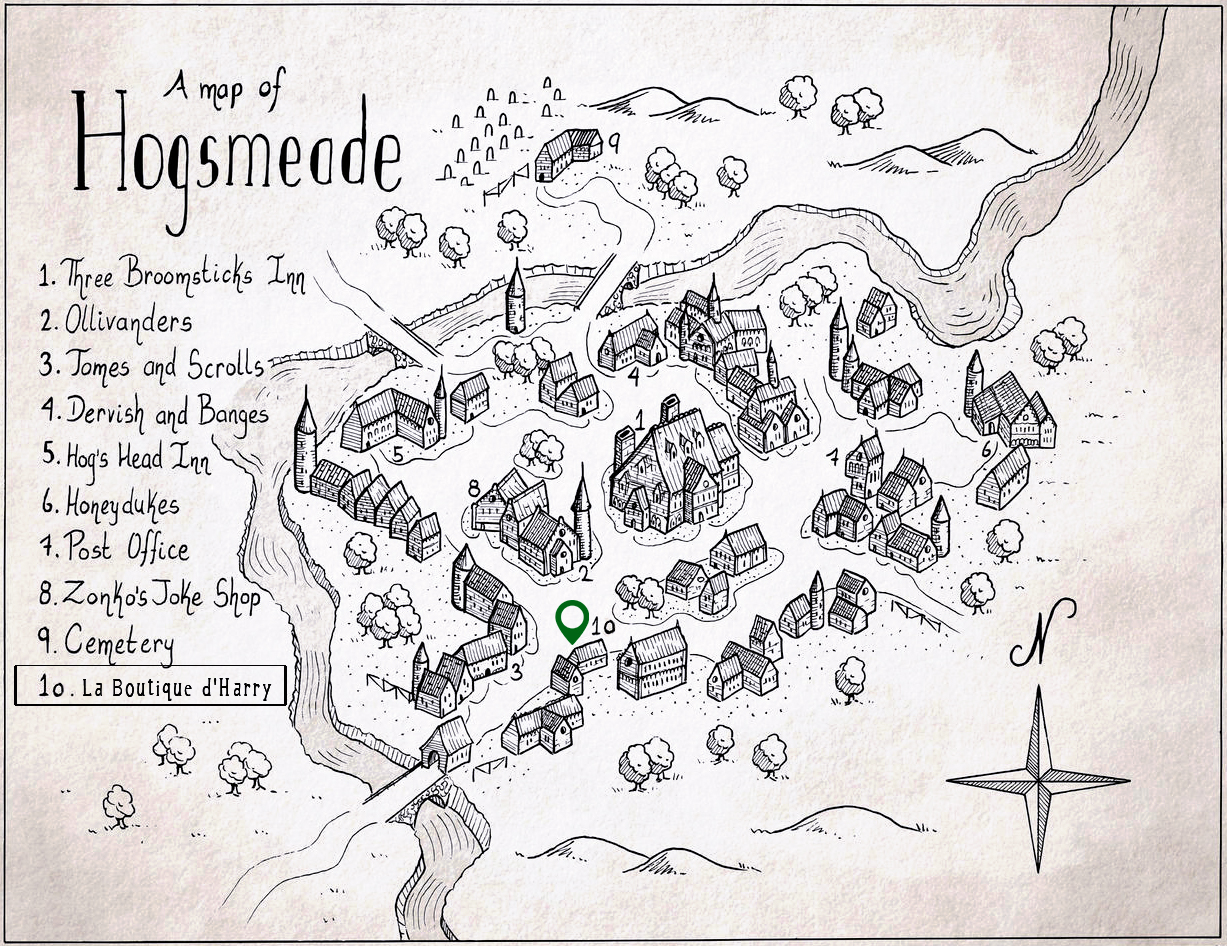 A map of
Hogsmeade
1. Three Broomsticks Inn
2. Ollivanders
3. Tomes and Scrolls
4. Dervish and Banges
5. Hog's Head Inn
6. Honeydukes
7. Post Office
8. Zonko's Joke Shop
9. Cemetery
10. La Boutique d'Harry
9
4
1
5
6
7
8
2
10
3
N